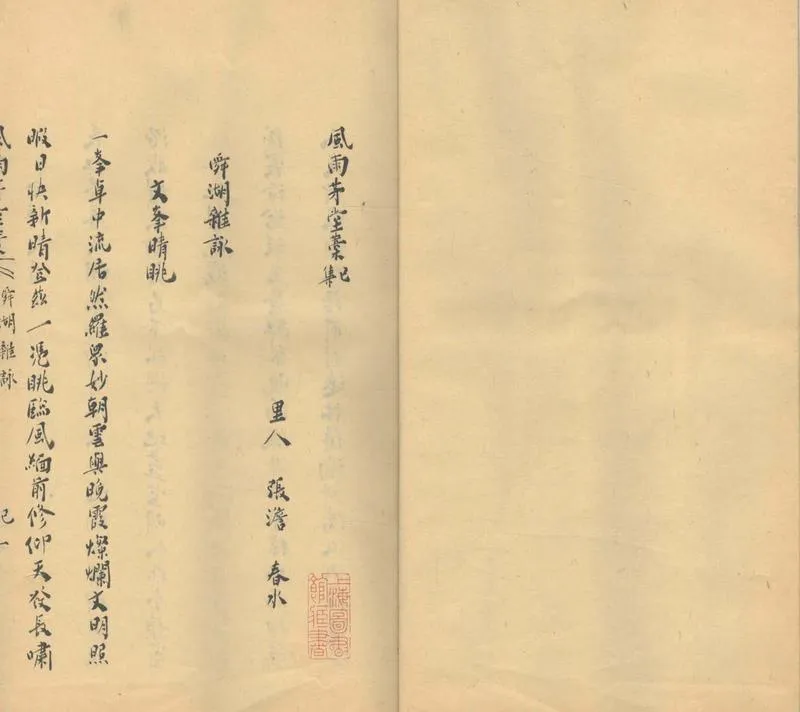 風雨茅堂稾己集
里人 張澹 春水
舜湖雜詠
文峯晴眺
一峯卓中流居然羅眾妙朝雲與晚霞燦爛文明照
暇日快新晴登茲一憑眺臨風緬前修仰天發長嘯
舜湖雜詠
上海圖書館藏書